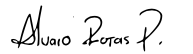 Alvaro Rotas P.